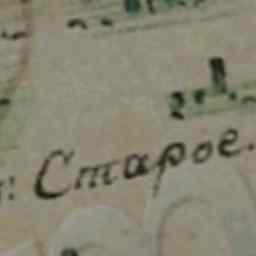 : Старое.